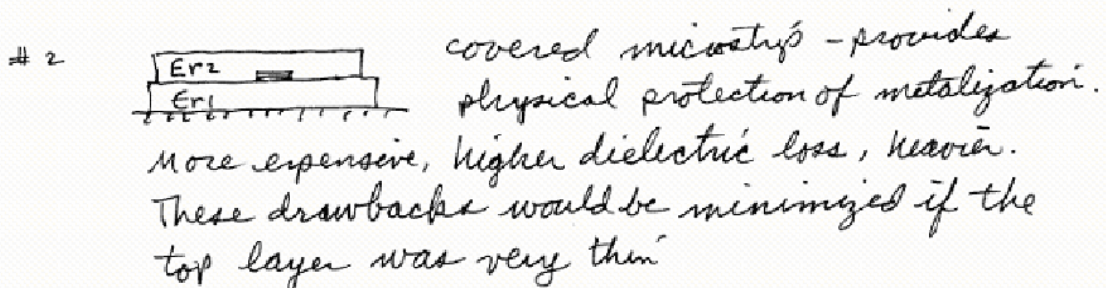 # 2
covered microstrip - provides
Er2
physical protection of metalization.
Er1
More expensive, higher dielectric loss, heavier.
These drawbacks would be minimized if the
top layer was very thin